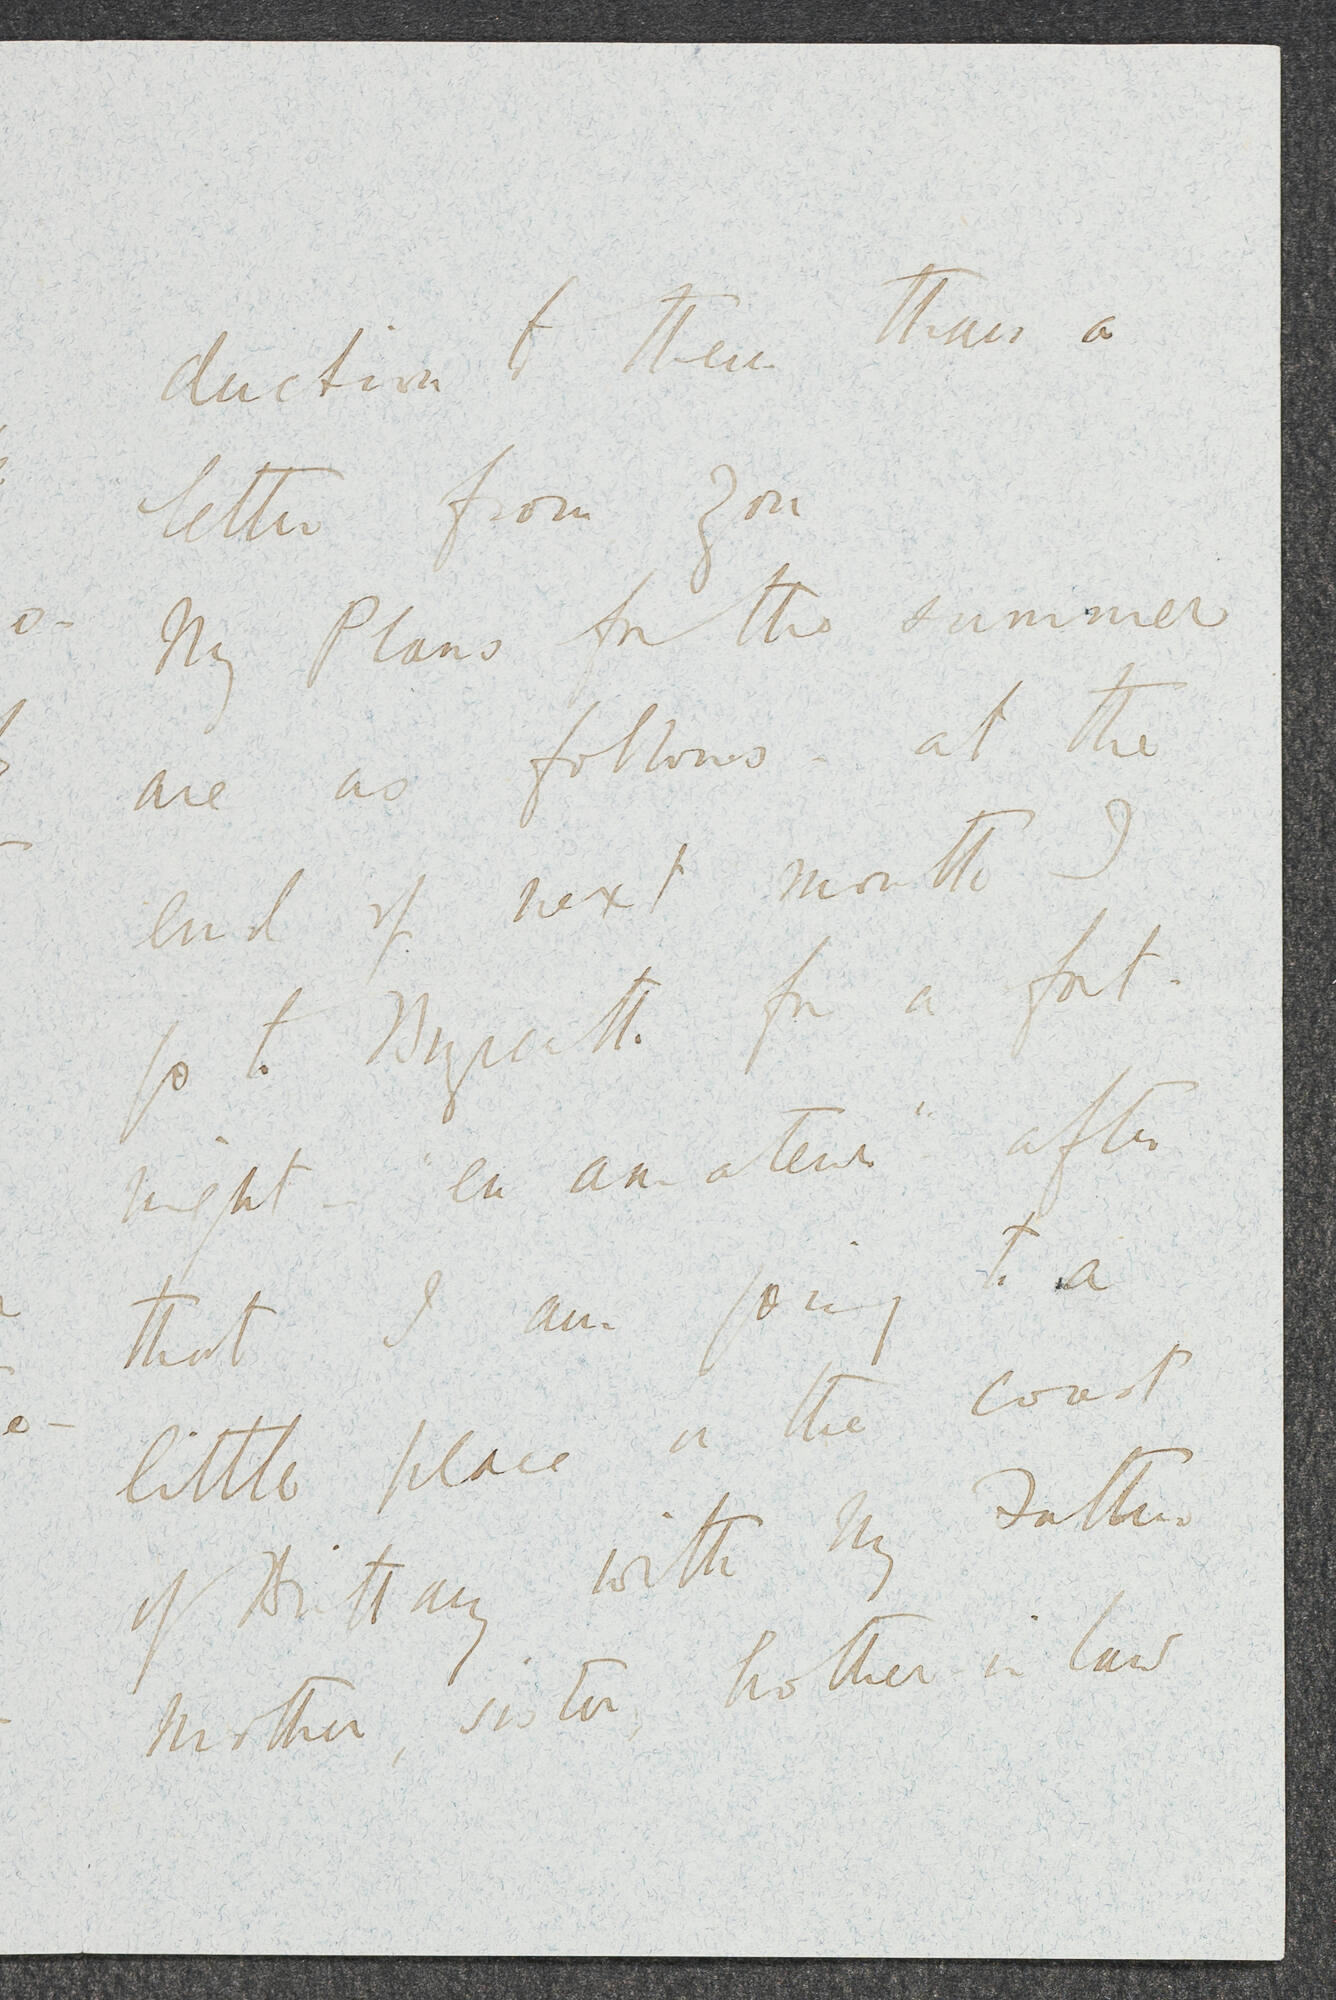 duction to them than a
letter from you
My Plans for the summer
are as follows - at the
end of next month I
go to Bayreuth for a fort-
night - "en amateur" after
that I am going to a
little place on the coast
of Brittany with my Father
mother, sister, brother in law